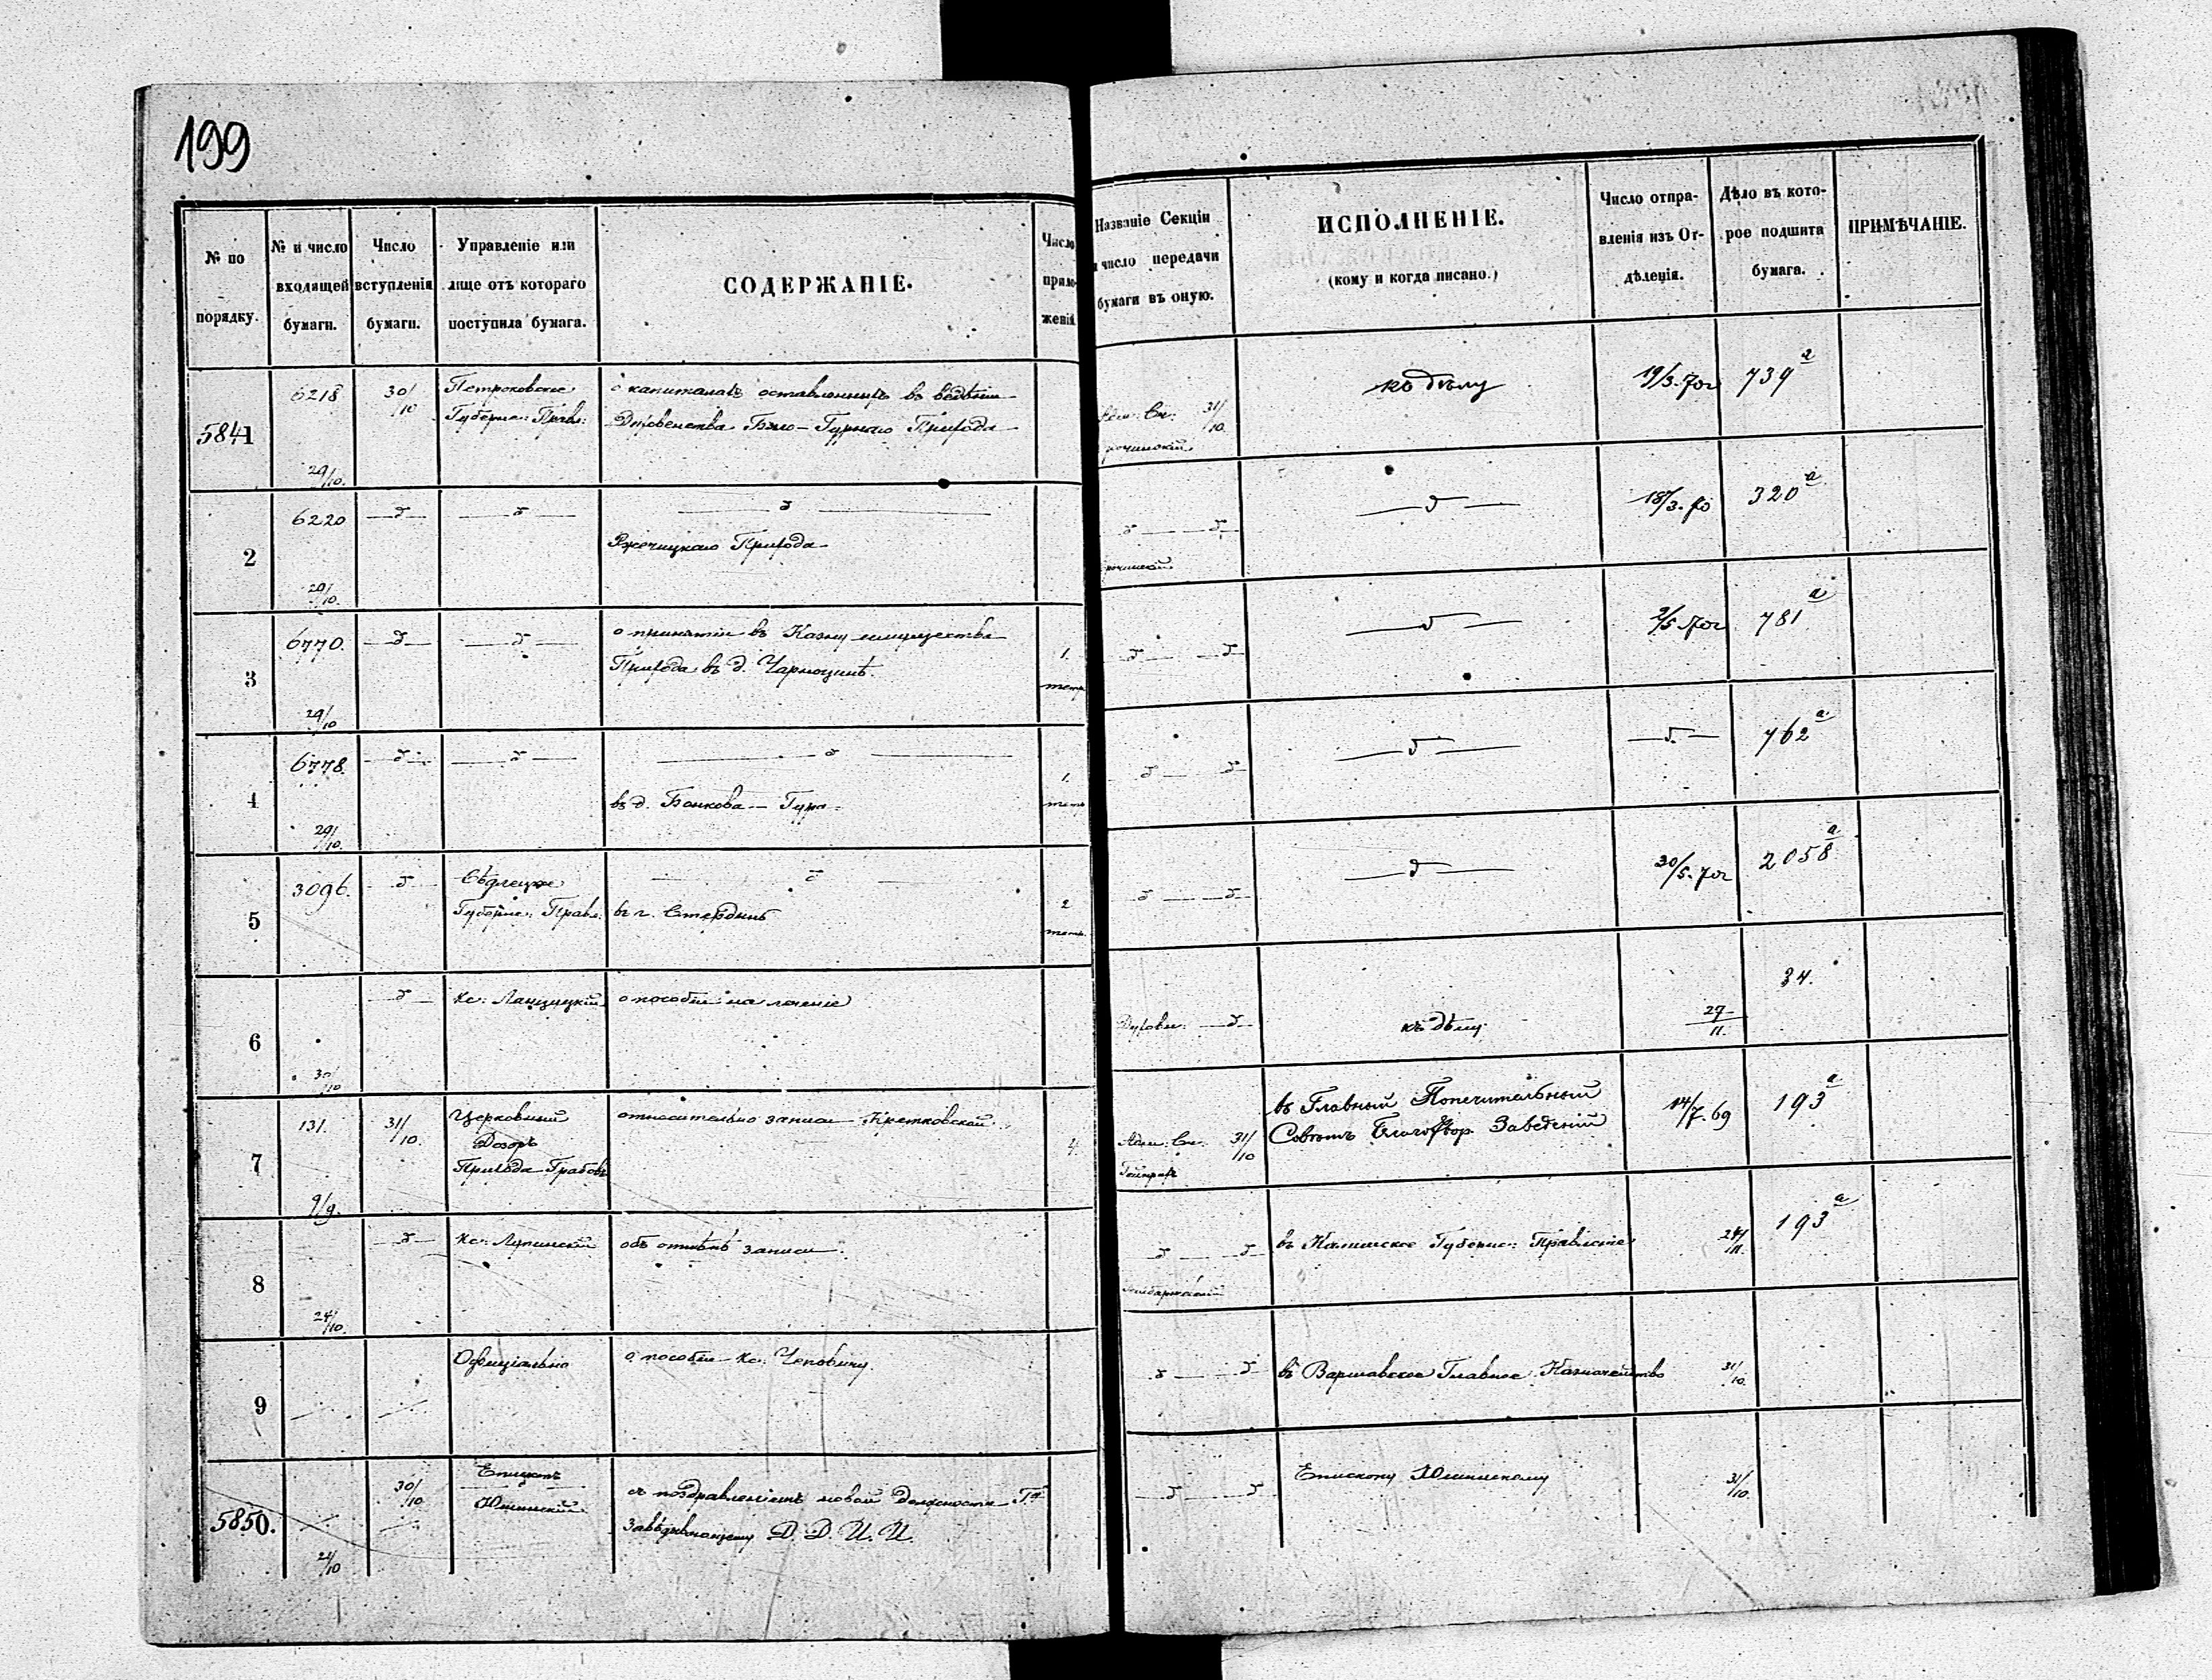 199
№ по порядку.
№ и число входящей бумаги.
Число вступленія бумаги.
Управленіе или лице отъ котораго поступила бумага.
СОДЕРЖАНІЕ.
Число приложеній
Названіе Секціи и число передачи бумаги въ оную.
ИСПОЛНЕНІЕ.
(кому и когда писано.)
Число отправленія изъ Отдѣленія.
Дѣло въ которое подшита бумага.
ПРИМѢЧАНІЕ.
5841
6218
29/10.
30/10
Петроковское
Губерн: Правл:
о капиталахъ оставленныхъ въ вѣдѣніи
Духовенства Бѣло-Гурнаго Прихода
Адм: Ск: 31/10.
къ дѣлу
19/3. 70г
739 а
2
6220
29/10.
— д —
— д —
— д —
Ржечицкаго Прихода
д — д
— д —
18/3. 70
320 а
3
6770.
29/10
— д —
— д —
о принятіи въ Казну имущества
Прихода въ д. Чарноцинѣ.
1.
тетр
д — д
— д —
2/5 70г
781 а
4
6778.
29/10.
— д —
— д —
— д —
въ д. Банкова-Гура.
1.
тетр
д — д
— д —
— д —
762 а
5
3096.
— д —
Сѣдлецкое
Губерн: Правл:
— д —
въ г. Стердынь
2
тетр.
д — д
— д —
30/5. 70г
2058 а
6
30/10
— д —
Кс: Ланщицкій
о пособіи на леченіе
Духовн: — д —
къ дѣлу
27/11.
34.
7
131.
9/9.
31/10.
Церковный
Дозоръ
Прихода Грабовъ
относительно записи Кретковской
4.
Адм: Ск: 31/10
въ Главный Попечительный
Совѣтъ Благотвор. Заведеній
14/7. 69
193 а
8
24/10.
— д —
Кс: Лупинскій
объ отмѣнѣ записи.
д — д
въ Калишское Губернс: Правленіе
24/11.
193 а
9
Офиціально
о пособіи Кс: Чеповичу.
д — д
въ Варшавское Главное Казначейство
31/10.
5850.
24/10
30/10
Епископъ
Юшинскій
съ поздравленіемъ новой должности Гл
Завѣдывающему Д. Д. И. И.
— д — д
Епископу Юшинскому
31/10.